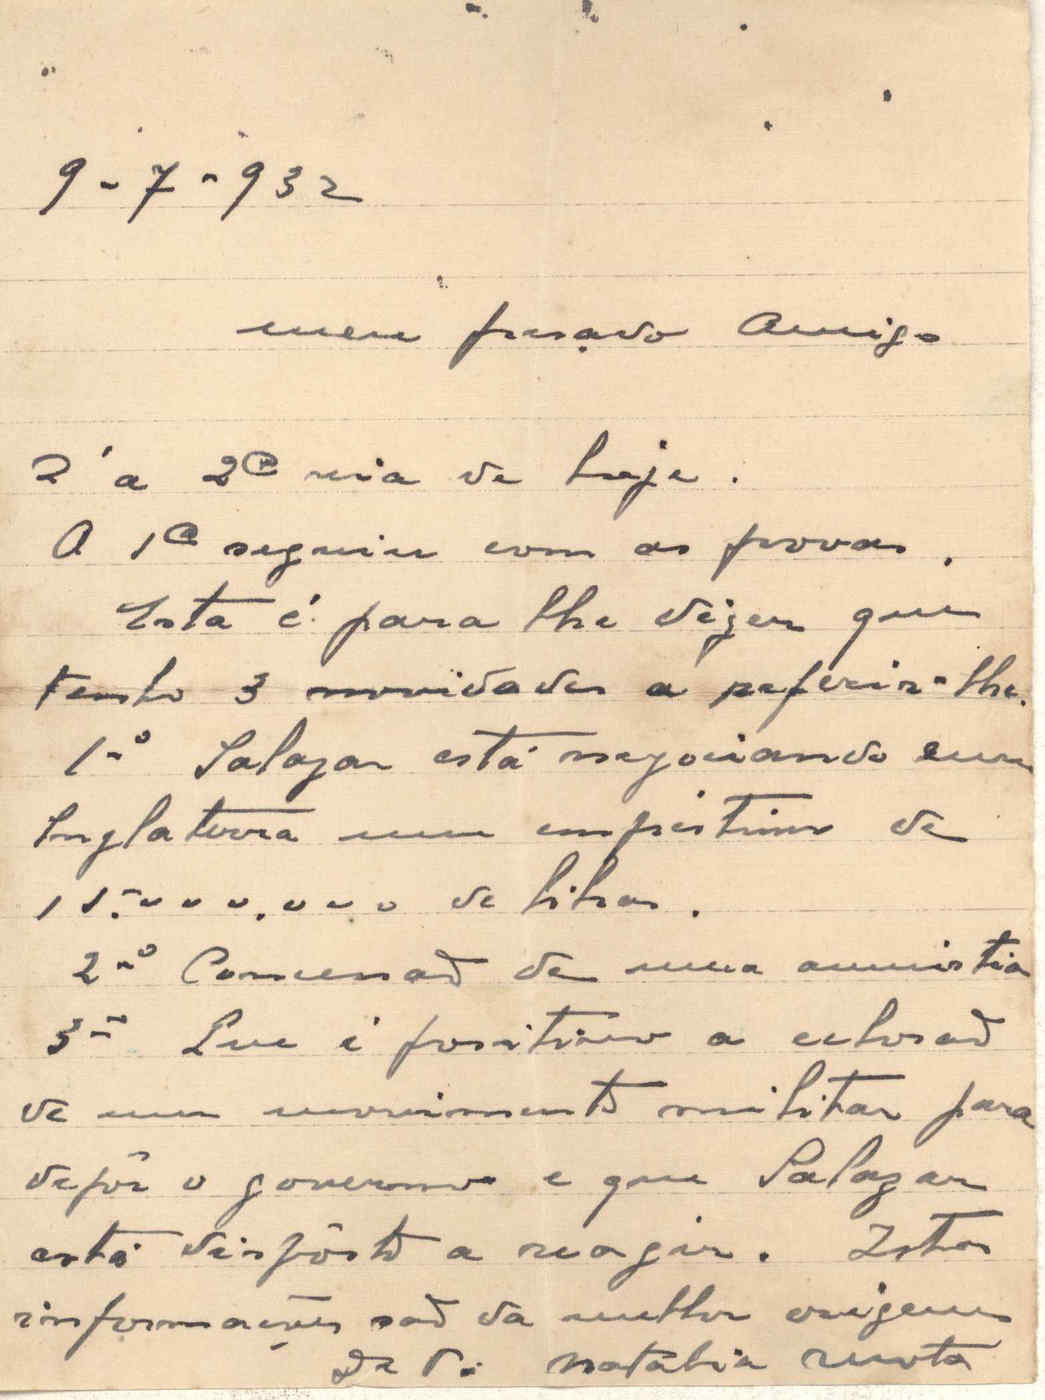 9-7-932
meu presado Amigo
É a 2ª via de hoje.
A 1ª seguiu com as provas.
Esta é para lhe dizer que
tenho 3 novidades a referir-lhe.
1-º Salazar está negociando em
Inglaterra um emprestimo de
15.000.000 de libras.
2-º Concessaõ de uma amnistia
3-º Que é positivo a eclosaõ
de um movimento militar para
depôr o governo e que Salazar
está dispôsto a reagir. Estas
informações saõ da melhor origem
De V.